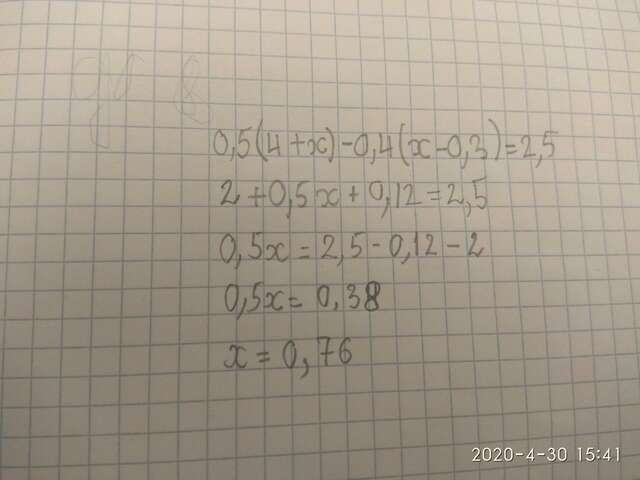 0,5(4+x)-0,4(x-0,3)=2,5
2+0,5x+0,12=2,5
0,5x=2,5-0,12-2
0,5x=0,38
x=0,76
2020-4-30 15:41